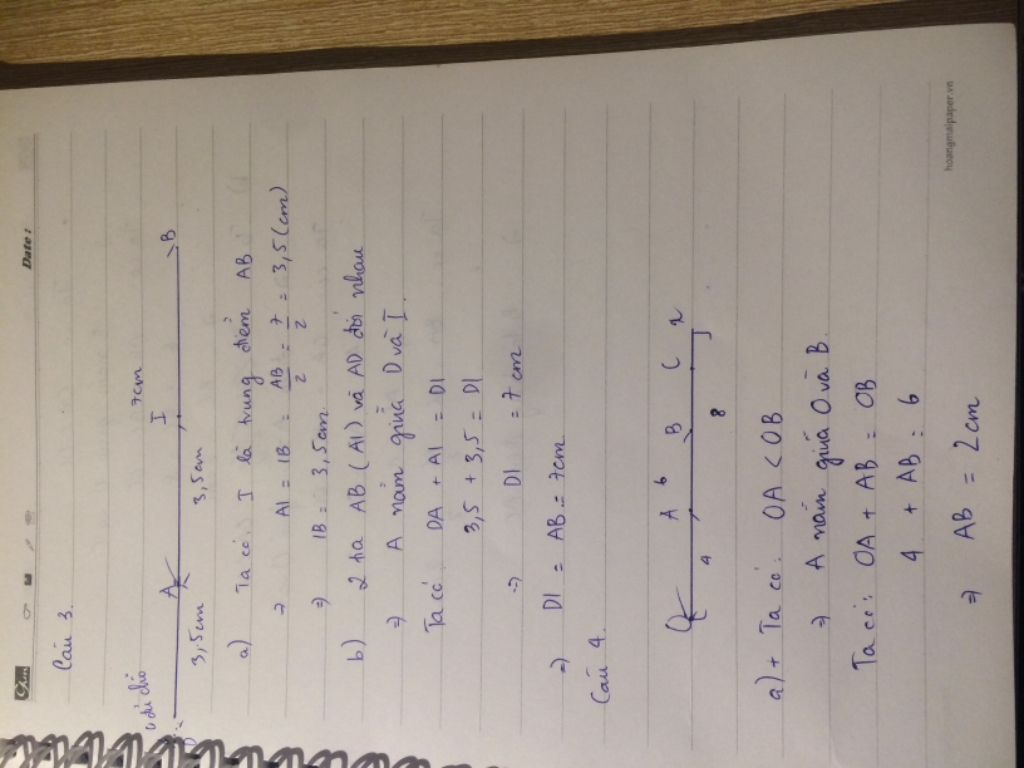 Date :
Câu 3.
7cm
D A I B
3,5cm 3,5cm
a) Ta có: I là trung điểm AB
=> AI = IB = AB/2 = 7/2 = 3,5 (cm)
=> IB = 3,5cm
b) 2 tia AB (AI) và AD đối nhau
=> A nằm giữa D và I.
Ta có: DA + AI = DI
3,5 + 3,5 = DI
=> DI = 7 cm
=> DI = AB = 7cm
Câu 4.
6
O A B C x
4
8
a) + Ta có: OA < OB
=> A nằm giữa O và B.
Ta có: OA + AB = OB
4 + AB = 6
=> AB = 2cm
hoangmaipaper.vn